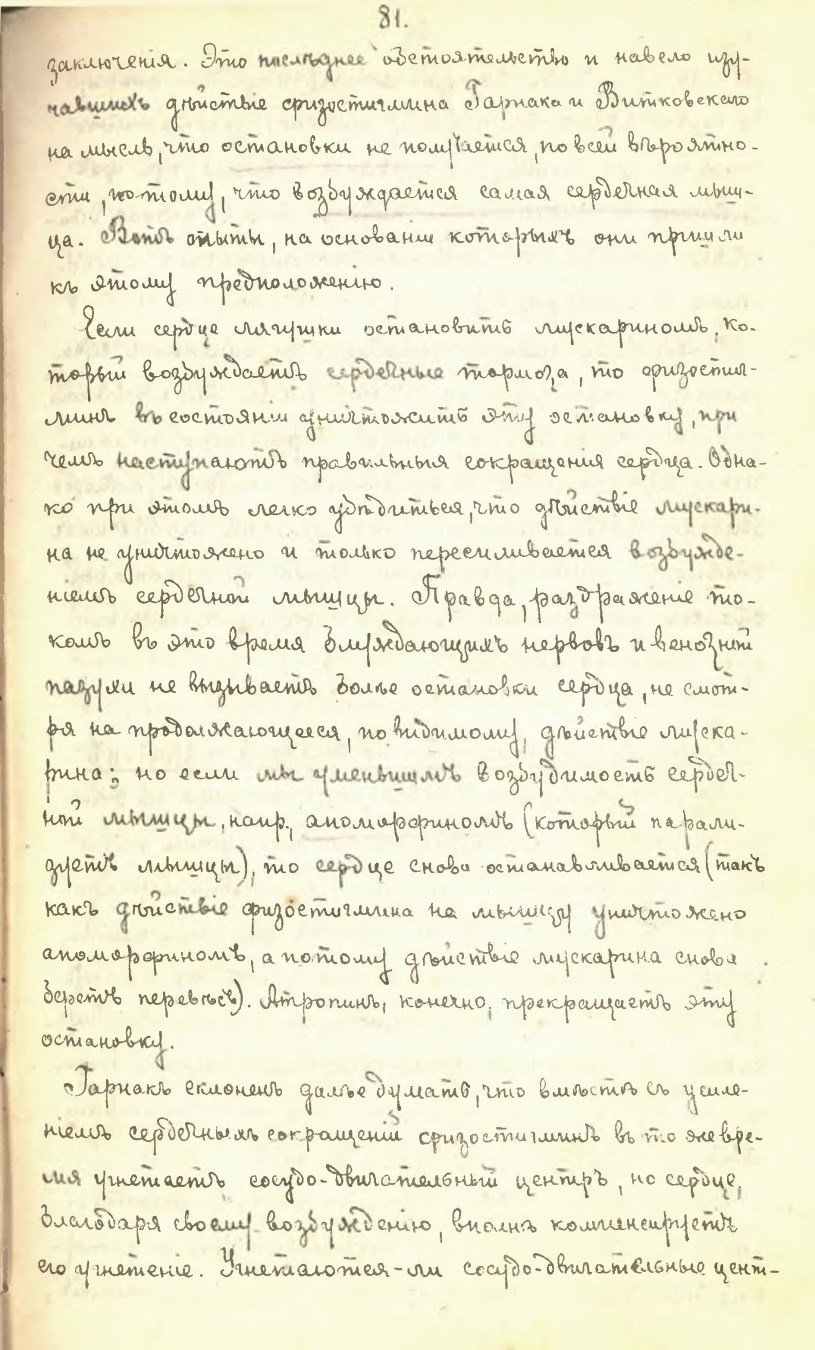 81.
заключенія. Это последнее обстоятельство и навело изу-
чавшихъ дѣйствіе физостигмина Гарнака и Витковскаго
на мысль, что остановки не получается, по всей вѣроятно-
сти, потому, что возбуждается самая сердечная мыш-
ца. Вотъ опыты, на основаніи которыхъ они пришли
къ этому предположенію.
Если сердце лягушки остановить мускариномъ, ко-
торый возбуждаетъ сердечные тормоза, то физостиг-
минъ въ состояніи уничтожить эту остановку, при
чемъ наступаютъ правильныя сокращенія сердца. Одна-
ко при этомъ легко убѣдиться, что дѣйствіе мускари-
на не уничтожено и только пересиливается возбужде-
ніемъ сердечной мышцы. Правда, раздраженіе то-
комъ въ это время блуждающихъ нервовъ и венозной
пазухи не вызываетъ болѣе остановки сердца, не смот-
ря на продолжающееся, по видимому, дѣйствіе муска-
рина; но если мы уменьшимъ возбудимость сердеч-
ной мышцы, напр., апоморфиномъ (который парали-
зуетъ мышцы), то сердце снова останавливается (такъ
какъ дѣйствіе физостигмина на мышцу уничтожено
апоморфиномъ, а потому дѣйствіе мускарина снова
беретъ перевѣсъ). Атропинъ, конечно, прекращаетъ эту
остановку.
Гарнакъ склоненъ далѣе думать, что вмѣстѣ съ усиле-
ніемъ сердечныхъ сокращеній физостигминъ въ то же вре-
мя угнетаетъ сосудо-двигательный центръ, но сердце,
благодаря своему возбужденію, вполнѣ компенсируетъ
его угнетеніе. Угнетаются-ли сосудо-двигательные цент-